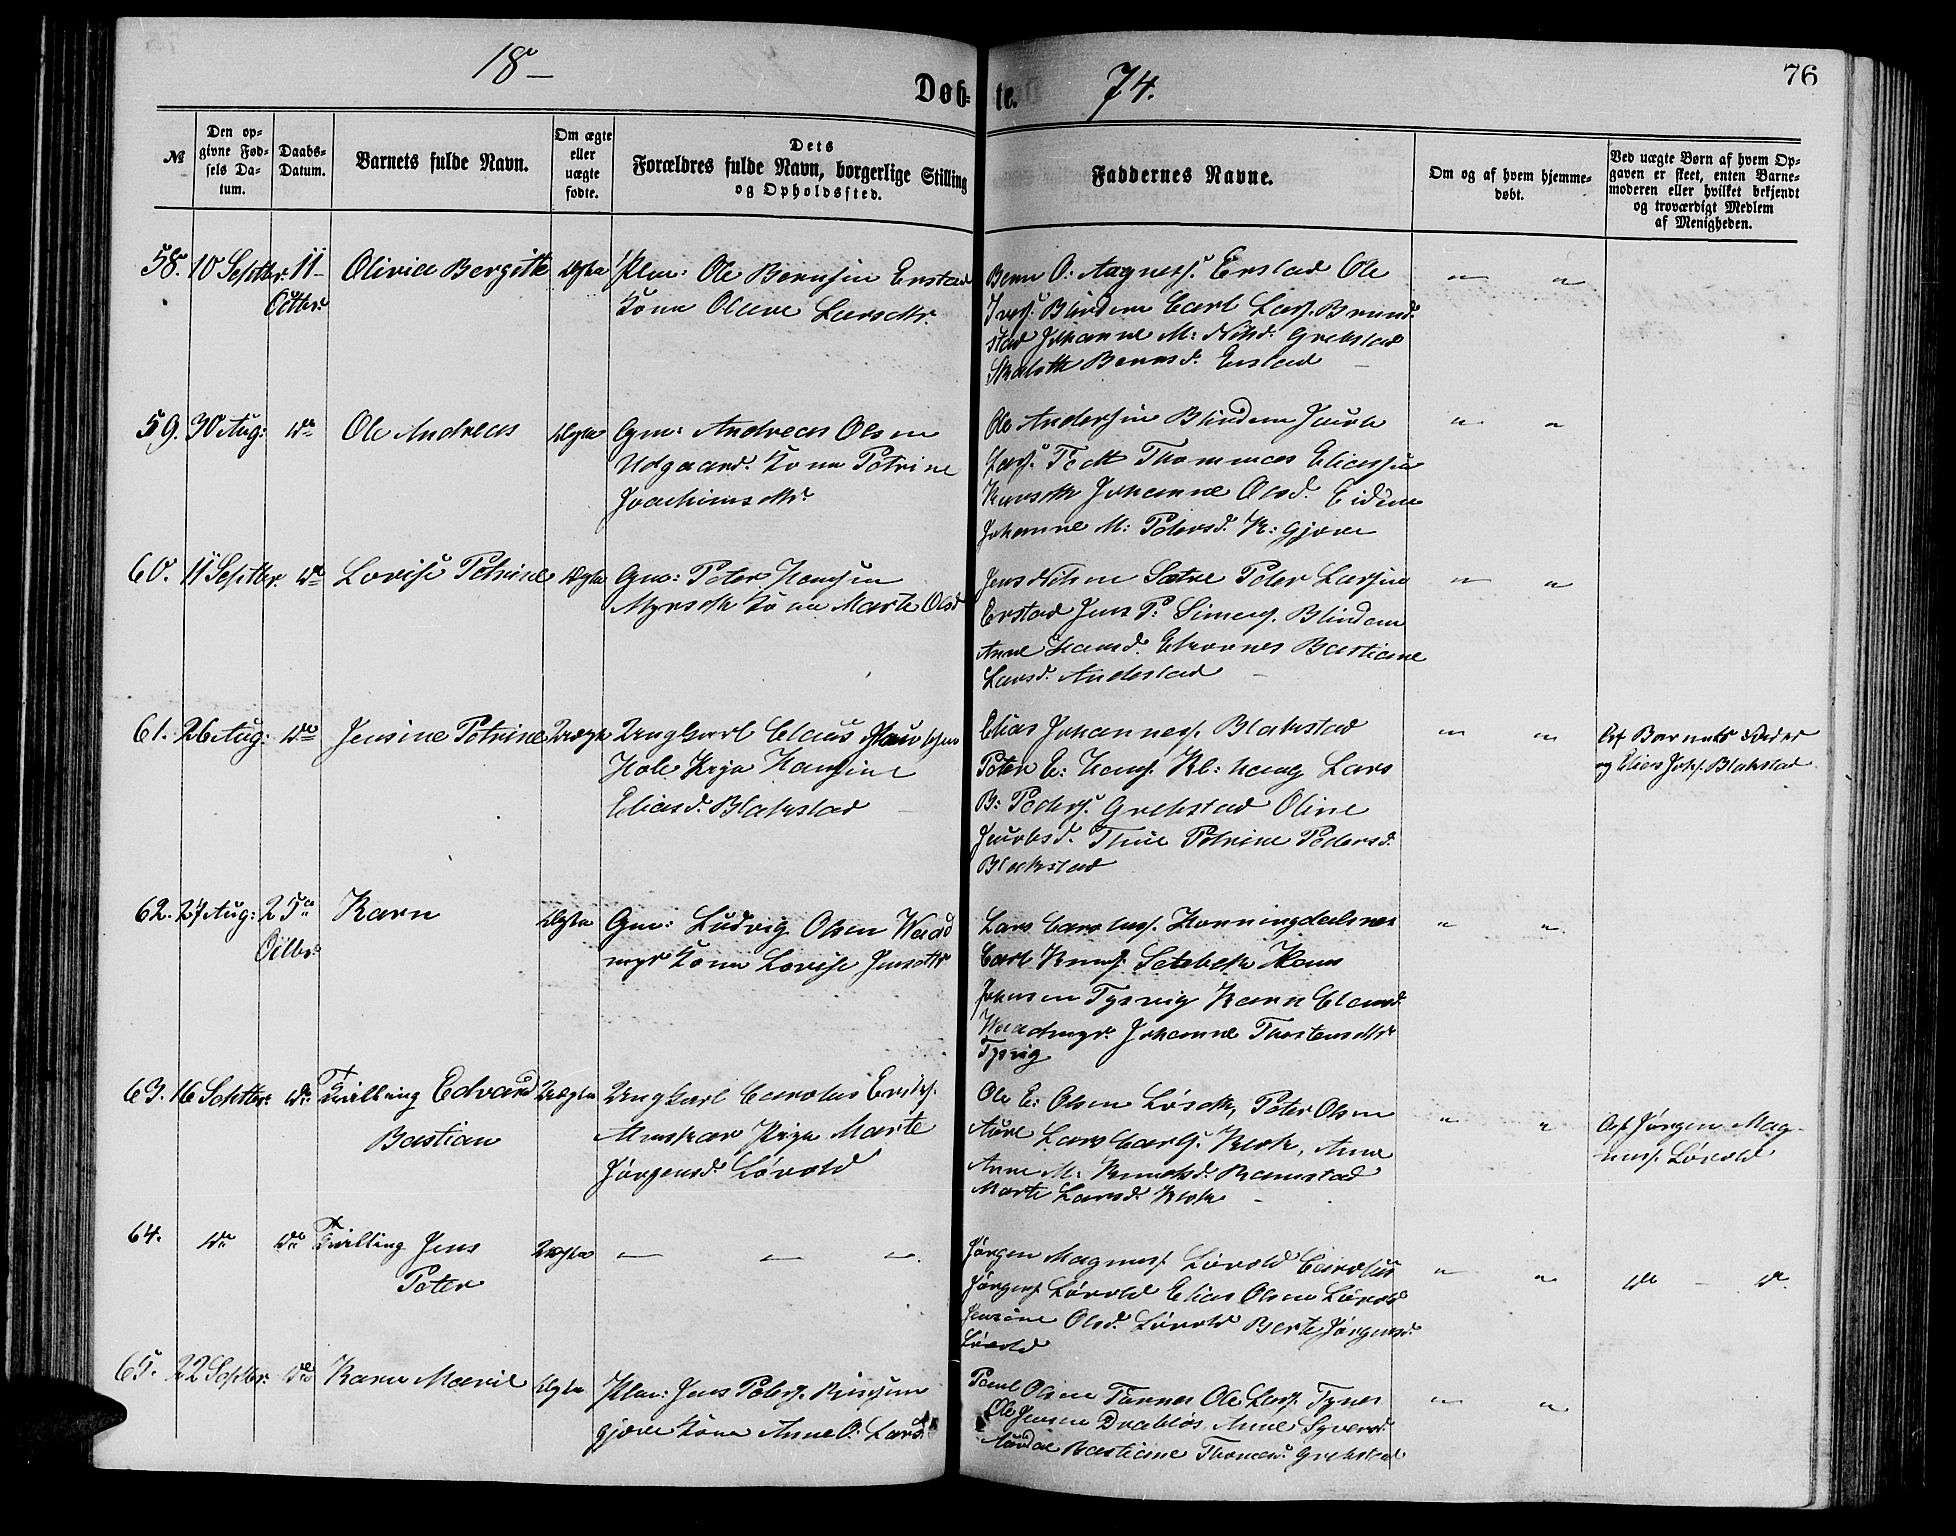 18-
Døb-te. 74.
76
№
Den opgivne Fødsels Datum.
Daabs-Datum.
Barnets fulde Navn.
Om ægte eller uægte fødte.
Dets
Forældres fulde Navn, borgerlige Stilling
og Opholdssted.
Faddernes Navne.
Om og af hvem hjemme-
døbt.
Ved uægte Børn af hvem Op-
gaven er skeet, enten Barne-
moderen eller hvilket bekjendt
og troværdigt Medlem
af Menigheden.
58. 10 Septbr. 11- Olivia Bergitte Ægte Plm: Ole Bernsen Erstad
Octbr. Kone Oline Larsdtr.
Bern O: Aagness. Erstad Ole
Ivers. Blindem Carl Lass. Brund-
stad Johanne M: Nilsd. Grebstad
Bernsd. Erstad
" "
59. 30 Aug: do Ole Andreas Ægte Gm: Andreas Olsen
Udgaard. Kone Petrine
Joachimsdtr.
Ole Andersen Blindem Jacob
Lass. Tommas Eliassen
Johanne Olsd. Eidem
Johanne M: Petersd. K: Gjøre
" "
60. 11 Septbr. do Lovise Petrine Ægte Gm: Peter Hansen
Myrseth Kone Marte Olsd
Jens Nilsen Sætre Peter Larsen
Erstad Jens P: Simens. Blindem
Anne Hansd. Ekornes Bastiane
Larsd. Andestad
" "
61. 26 Aug: do Jensine Petrine Uægte Ungkarl Claus
Hole Pige Hansine
Eliasd. Blakstad
Elias Johanness. Blakstad
Peter E: Hans. Kl: haug Lars
B: Peders. Grebstad Oline
Jacobsd. Thue Petrine Pedersd.
Blakstad
" "
Af Barnets Fader
og Elias Johs. Blakstad
62. 27 Aug: 25de Karn Ægte Gm: Ludvig Olsen Waad
Octbr. myr Kone Lovise Jensdtr
Lars Carolius. Honningdalsnes
Carl Knuds. Setebek Hans
Johnsen Tysvig Karn Clausd.
Waadmyr. Johanne Thorstensdtr
Tysvig
" "
63. 16 Septbr. do Tvilling Edvard Uægte Ungkarl Carolus Eriks.
Bastian
Pige Marte
Jørgensd. Løvold
Ole E: Olsen Løseth, Peter Olsen
Aure Lars Carls. Kirk, Anne
Anne M: Knudsd. Ramstad
Marte Larsd. Kirk
" "
Af Jørgen Mag-
nus. Løvold
64. do do Tvilling Jens Uægte - - -
Peter
Jørgen Magnus. Løvold Carolus
Jørgens. Løvold Elias Olsen Løvold
Jensine Olsd. Løvold Berte Jørgensd.
Løvold
" "
do - do
65. 22 Septbr. do Karn Marie Ægte Plm: Jens Peters.
gjære Kone Anne O: Larsd.
Paul Olsen Tusnes Ole Lass. Tynes
Ole Jensen Drabløs Anne Syversd.
Aurdal Bastiane Thomasd. Grebstad
" "